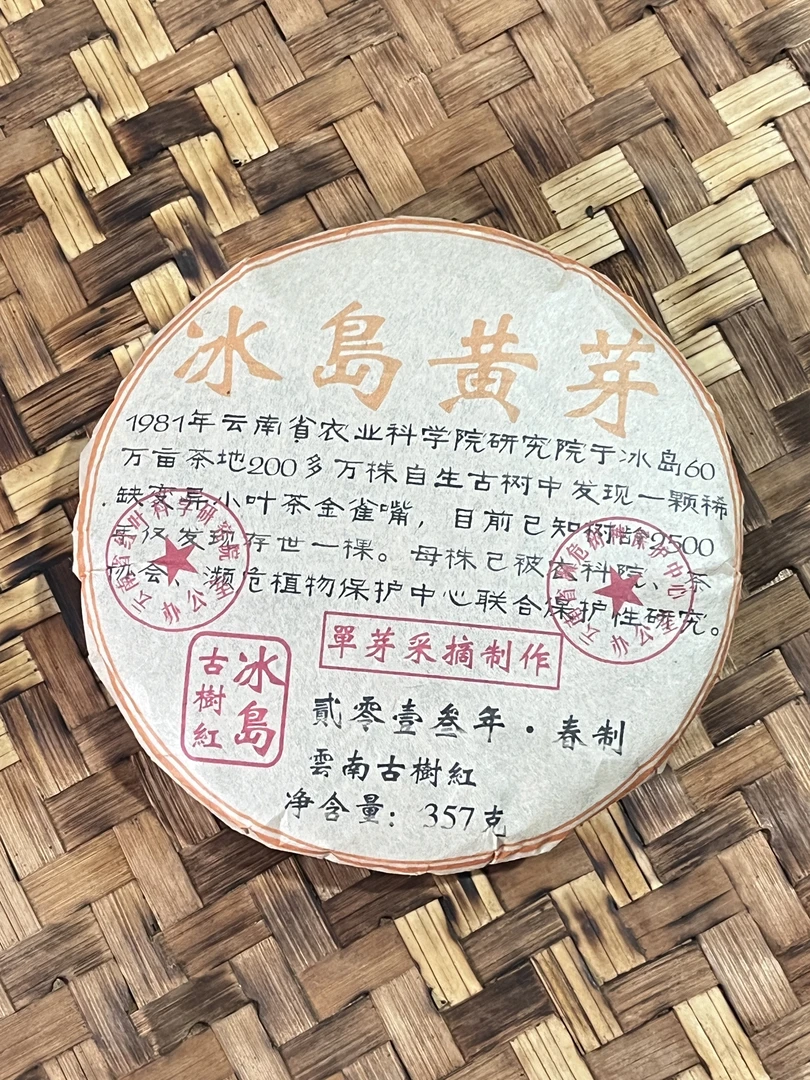 冰島黄芽
1981年云南省农业科学院研究院于冰岛60
万亩茶地200多万株自生古树中发现一颗稀
缺变异小叶茶金雀嘴，目前已知树龄9500
年仅发现存世一棵。母株已被农科院、茶
协会、濒危植物保护中心联合保护性研究。
單芽采摘制作
冰島
古樹紅
貳零壹叁年·春制
雲南古樹紅
净含量：357克
办公室
办公室